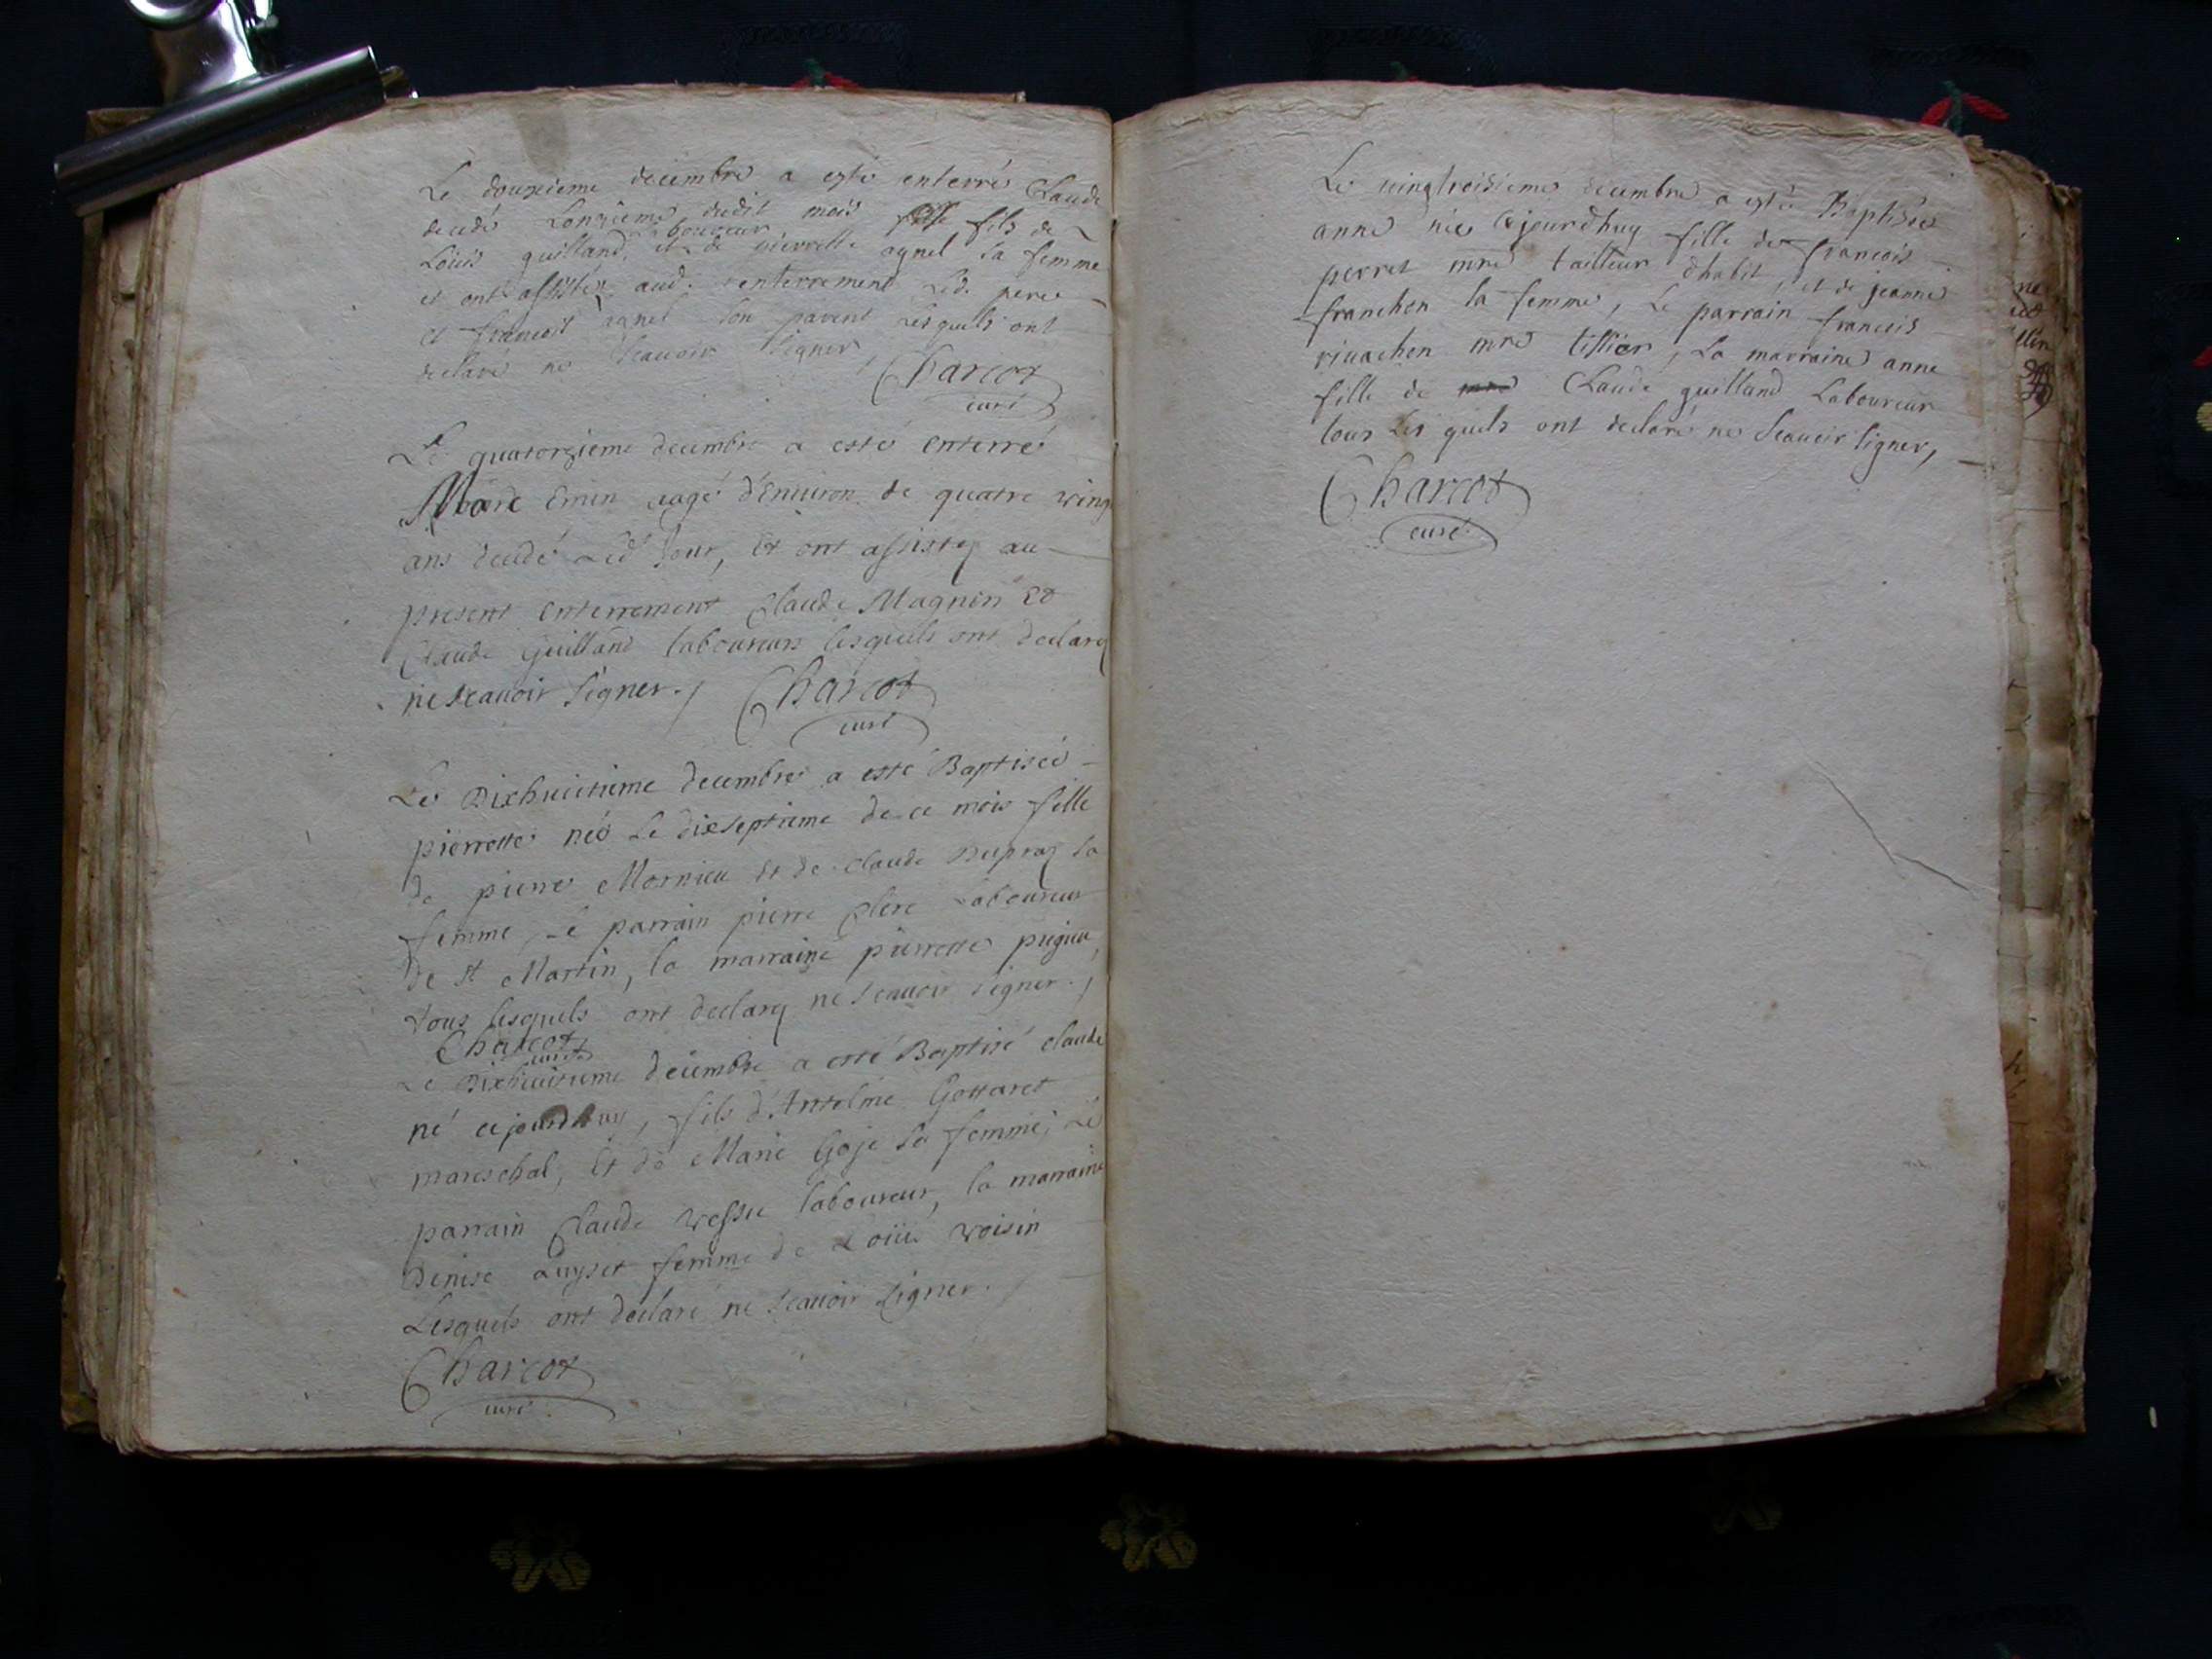 Le douzieme decembre a esté enterré Claude
decedé Lonzieme dudit mois fils de
Laboureur
Loüis guilland, et de pierrette agnel sa femme
et ont assistéz aud. enterrement Led. pere
et francois agnel son parent Lesquels ont
declaré ne scauoir signer,
Charcot
curé
Le quatorzieme decembre a esté enterré
Marc Emin aagé d'Enuiron de quatre ving
ans decedé Led Jour, Et ont assistez au
present enterrement Claude Magnin Et
Claude Guilland laboureurs lesquels ont declarez
ne scauoir signer./
Charcot
curé
Le Dixhuictieme decembre a esté Baptiseé
pierrette neé Le dixseptieme de ce mois fille
de pierre Mornieu et de Claude Dupraz sa
femme, Le parrain pierre Clerc Laboureur
de st Martin, la marraine pierrette pugieu,
tous lesquels ont declarez ne scauoir signer./
Charcot
curé
Le Dixhuictieme decembre a esté Baptisé claude
né cejourdhuy, fils d'Antelme Gottaret
mareschal, Et de Marie Goje sa femme, Le
parrain Claude vessu laboureur, la marraine
Denise Luyset femme de Loüis voisin
Lesquels ont declaré ne scauoir signer.
Charcot
curé
Le vingtroisieme decembre a esté Baptisée
anne née cejourdhuy fille de francois
perret mre tailleur dhabit, et de jeanne
franchon sa femme, Le parrain francois
riuachon mre tissier, La marraine anne
fille de Claude guilland Laboureur
tous Les quels ont declaré ne scauoir signer,
Charcot
curé